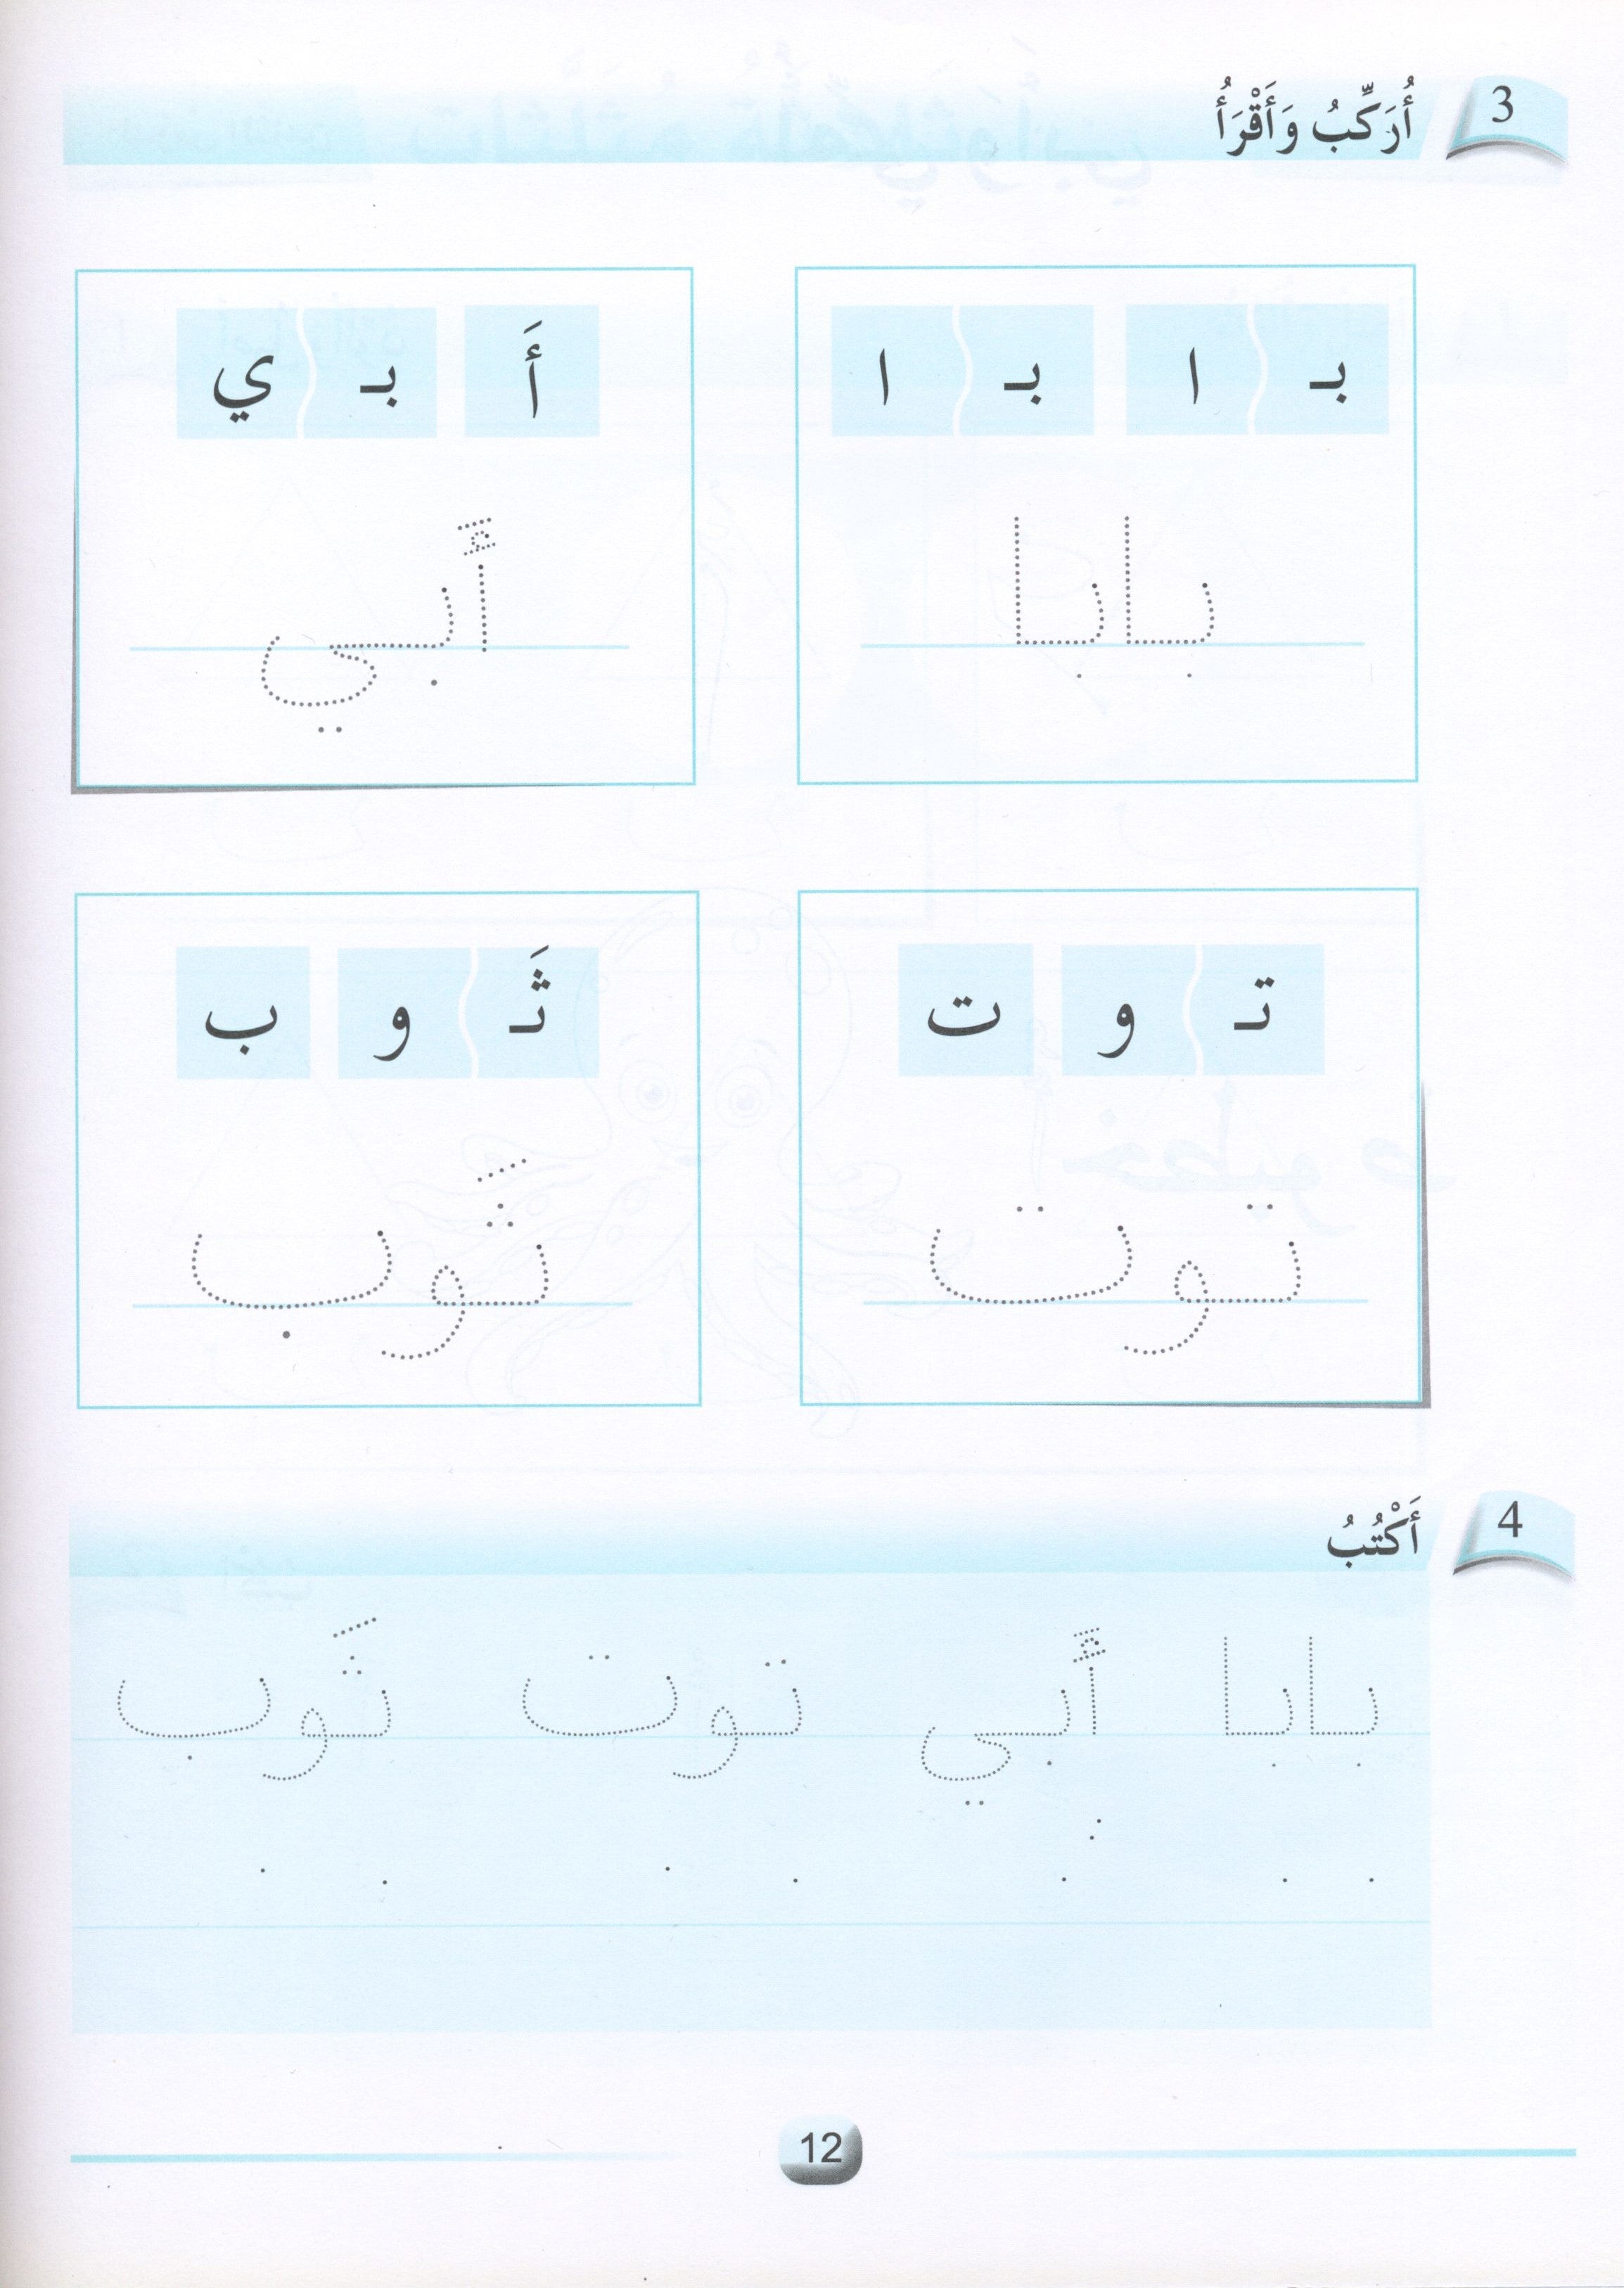 3 أُرَكِّبُ وَأَقْرَأُ
بـ ا بـ ا
بابا
أَ بـ ي
أَبي
تـ و ت
توت
ثَـ و ب
ثَوب
4 أَكْتُبُ
بابا أَبي توت ثَوب
12